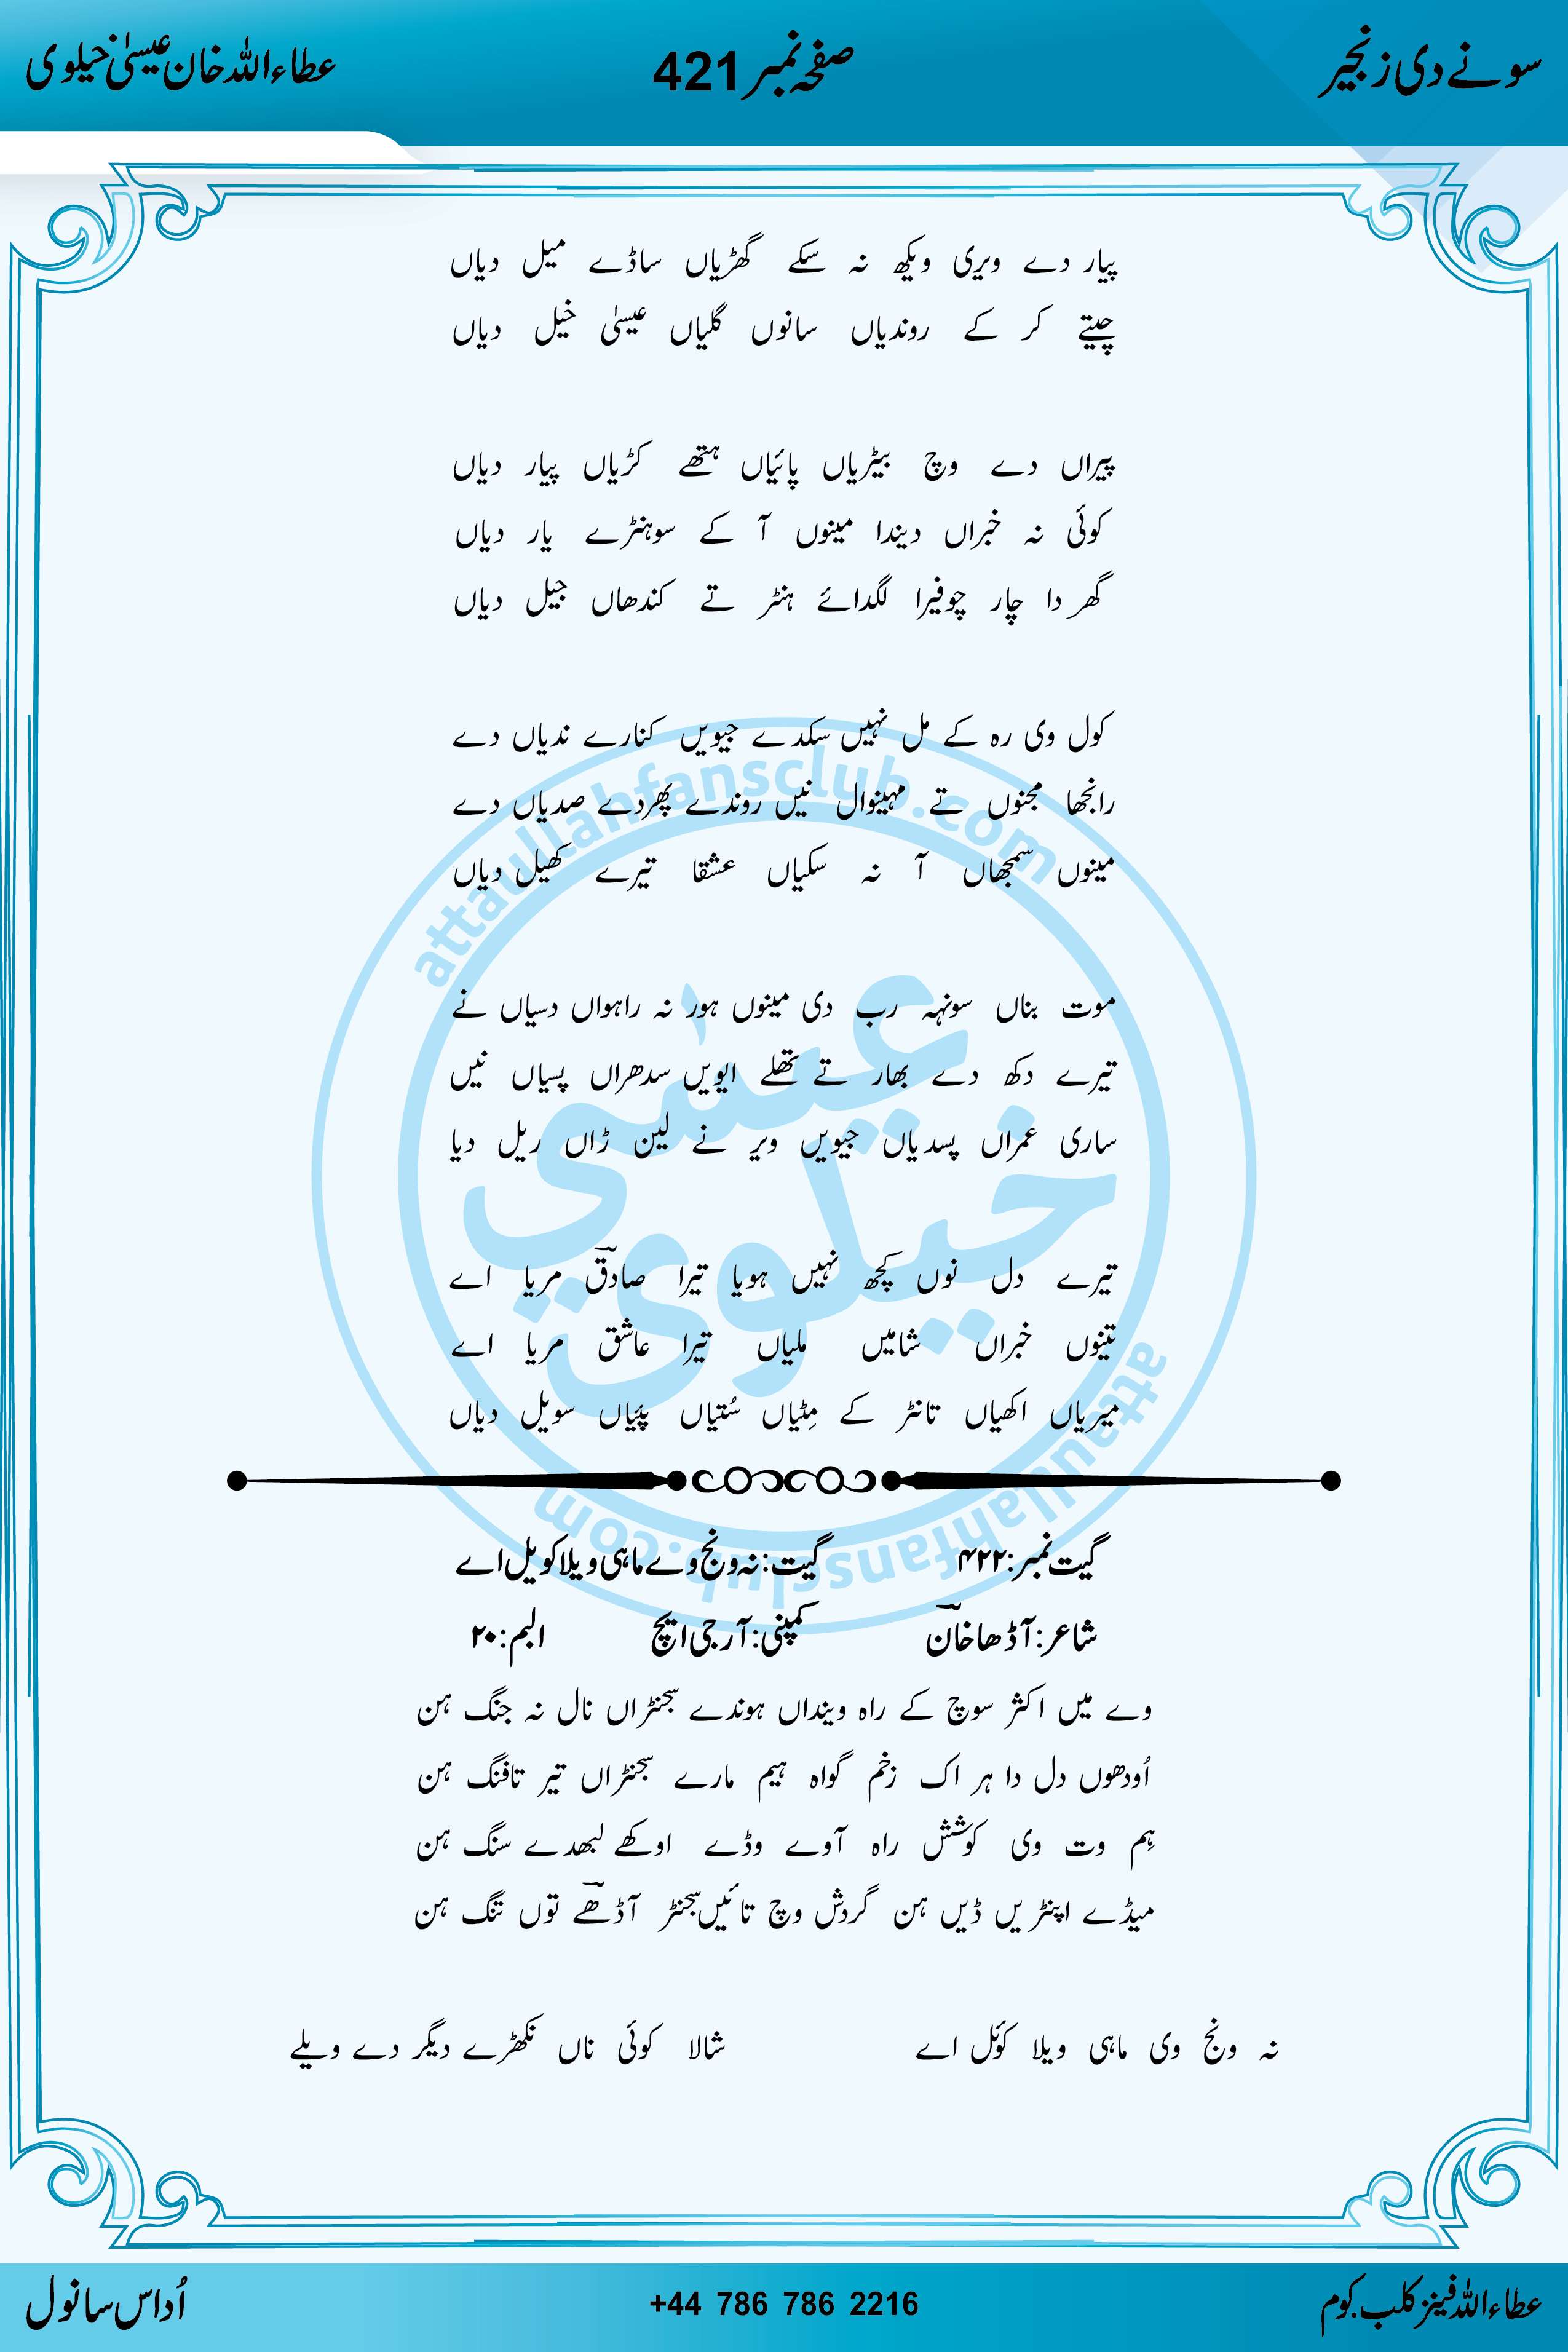 سونے دی زنجیر صفحہ نمبر 421 عطاءاللہ خان عیسیٰ خیلوی
پیار دے ویری ویکھ نہ سکے گھڑیاں ساڈے میل دیاں
چیتے کر کے روندیاں سانوں گلیاں عیسیٰ خیل دیاں
پیراں دے وچ بیڑیاں پائیاں ہتھے کڑیاں پیار دیاں
کوئی نہ خبراں دیندا مینوں آ کے سوہنڑے یار دیاں
گھر دا چار چوفیرا لگدائے ہنٹر تے کندھاں جیل دیاں
کول وی رہ کے مل نہیں سکدے جیویں کنارے ندیاں دے
رانجھا مجنوں تے مہینوال نیں روندے پھردے صدیاں دے
مینوں سمجھاں آ نہ سکیاں عشقا تیرے کھیل دیاں
موت بناں سونہہ رب دی مینوں ہور نہ راہواں دسیاں نے
تیرے دکھ دے بھار تے تھلے ایویں سدھراں پسیاں نیں
ساری عمراں پسدیاں جیویں ویر نے لین ڑاں ریل دیا
تیرے دل نوں کچھ نہیں ہویا تیرا صادقؔ مریا اے
تینوں خبراں شامیں ملیاں تیرا عاشق مریا اے
میریاں اکھیاں تانٹر کے مِٹیاں سُتیاں پئیاں سویل دیاں
گیت نمبر:۴۲۲ گیت:نہ ونج وے ماہی ویلا کویل اے
شاعر:آڈھا خانؔ کمپنی:آر جی ایچ البم:۲۰
وے میں اکثر سوچ کے راہ وینداں ہوندے سجنٹراں نال نہ جنگ ہن
اُودھوں دل دا ہر اک زخم گواہ ہیم مارے سجنٹراں تیر تافنگ ہن
ہِم وت وی کوشش راہ آوے وڈے اوکھے لبھدے سنگ ہن
میڈے اپنٹریں ڈیں ہن گردش وچ تائیں سجنٹر آڈھےؔ توں تنگ ہن
نہ ونج وی ماہی ویلا کوئل اے شالا کوئی ناں نکھڑے دیگر دے ویلے
attaullahfansclub.com
عیسٰی
خیلوی
attaullahfansclub.com
عطاءاللہ فینز کلب.کوم +44 786 786 2216 اُداس سانول